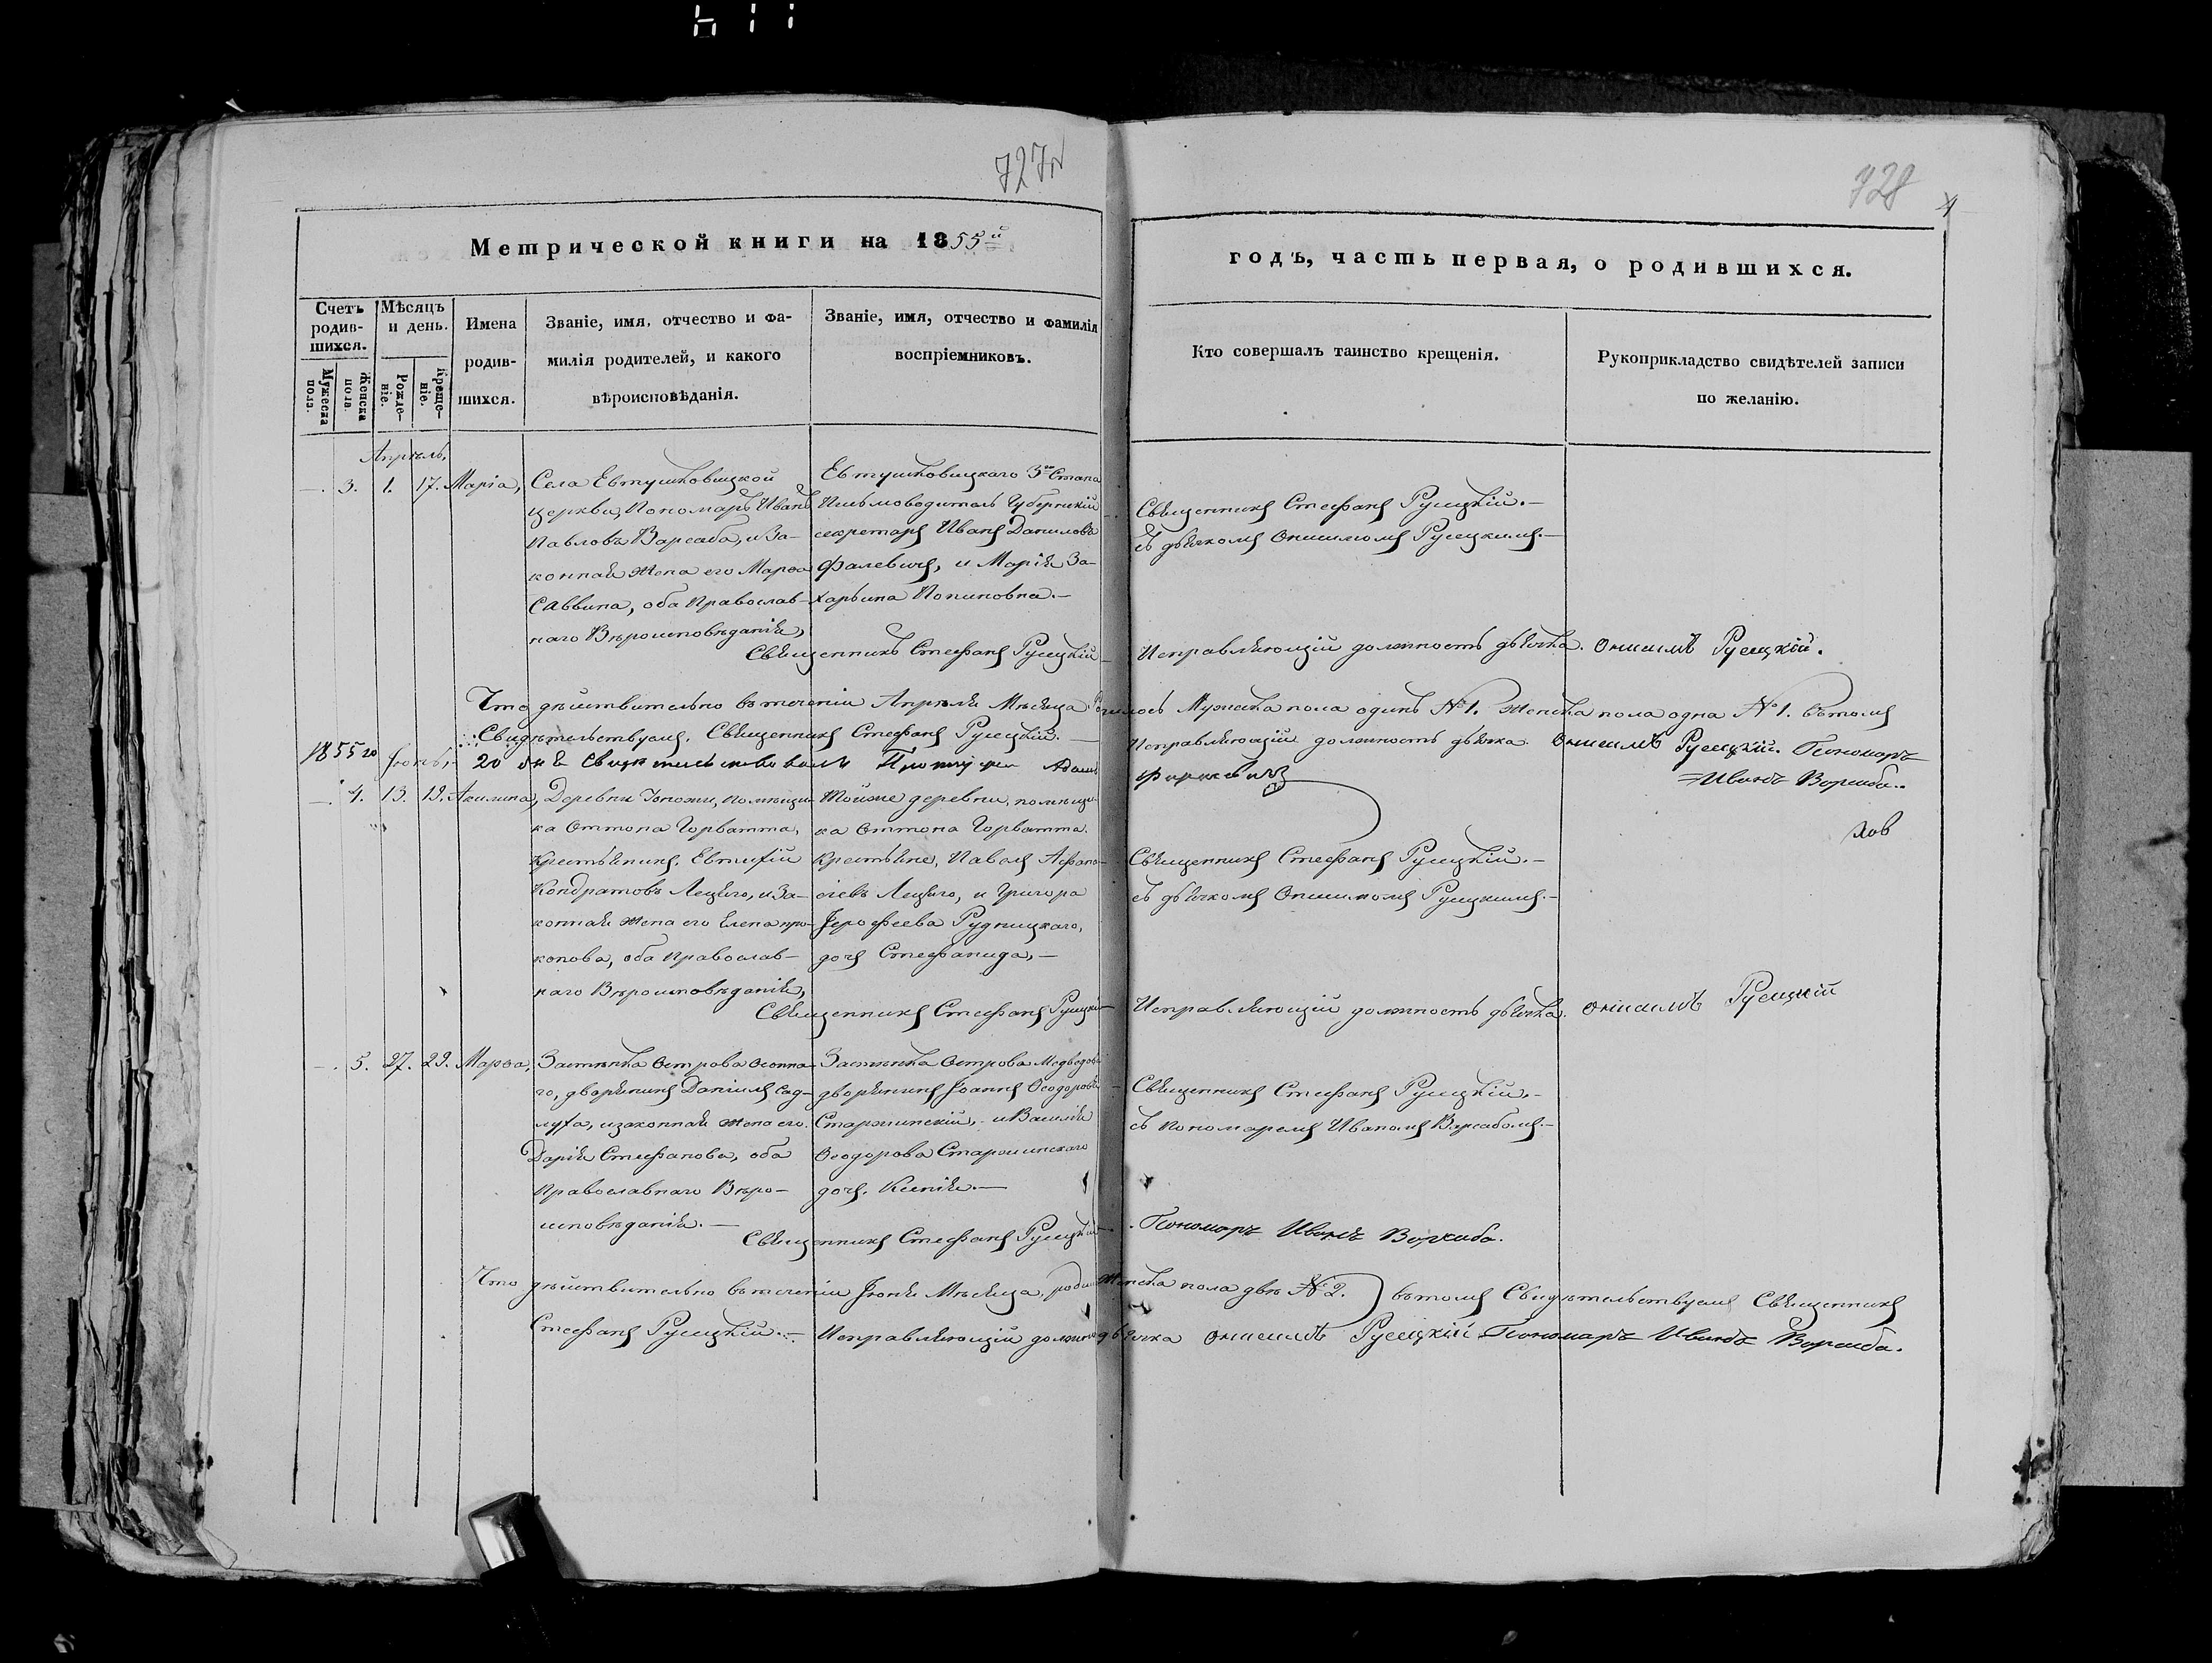 727
728
4
Метрической книги на 1855й
годъ, часть первая, о родившихся.
Счетъ родившихся.
Мужеска пола.
Женска пола.
Мѣсяцъ и день.
Рожденіе.
Крещеніе.
Имена родившихся.
Званіе, имя, отчество и фамилія родителей, и какого вѣроисповѣданія.
Званіе, имя, отчество и фамилія воспріемниковъ.
Кто совершалъ таинство крещенія.
Рукоприкладство свидѣтелей записи по желанію.
Апрѣль.
—. 3. 1. 17. Марія,
Села Евтушковицкой
церкви, Пономаръ Иванъ
Павловъ Варсаба, и за-
конная жена его Марѳа
Саввина, оба Православ-
наго Вѣроисповѣданія,
Евтушковицкаго 3го Стана
Письмоводитель Губернскій
секретаръ Иванъ Даниловъ
Фалевичъ, и Марія За-
харьина
Священникъ Стефанъ Русецкій.—
съ дьячкомъ Онисимомъ Русецкимъ.—
Священникъ Стефанъ Русецкій
Исправляющій должность дьячка. Онисимъ Русецкій.
Что дѣйствительно въ теченіи Апрѣля Мѣсяца родилось Мужеска пола одинъ №1. Женска пола одна №1. Въ томъ
Свидѣтельствуемъ. Священникъ Стефанъ Русецкій.—
Исправляющій должность дьячка. Онисимъ Русецкій. Пономаръ
Иванъ Варсаба.
1855го Іюнь,
20 дня свидѣтельствовалъ Адамъ
—. 4. 13. 19. Акилина,
Деревни помѣщи-
ка Оттона Горватта,
Крестьянинъ, Евтихій
Кондратовъ и за-
конная жена его Елена Про-
копова, оба Православ-
наго Вѣроисповѣданія,
Тойже деревни, помѣщи-
ка Оттона Горватта.
Крестьяне, Павелъ
и Григора
Іерофеева Рудницкаго,
дочь Стефанида,—
Священникъ Стефанъ Русецкій.—
съ дьячкомъ Онисимомъ Русецкимъ.—
Священникъ Стефанъ Русецкій
Исправляющій должность дьячка. Онисимъ Русецкій
—. 5. 27. 29. Марѳа,
Застѣнка Острова
го, дворянинъ Даніилъ
и законная жена его
Дарія Стефанова, оба
Православнаго Вѣро-
исповѣданія.—
Застѣнка Острова
дворянинъ Іоаннъ Ѳеодоровъ
Старжинскій, и Василія
Ѳеодорова Старжинскаго
дочь, Ксенія.—
Священникъ Стефанъ Русецкій.—
съ Пономаремъ Иваномъ Варсабомъ.—
Священникъ Стефанъ Русецкій
Пономаръ Иванъ Варсаба.
Что дѣйствительно въ теченіи Іюня Мѣсяца, родилось Женска пола двѣ №2. Въ томъ Свидѣтельствуемъ Священникъ
Стефанъ Русецкій.— Исправляющій должность дьячка Онисимъ Русецкій Пономаръ Иванъ Варсаба.